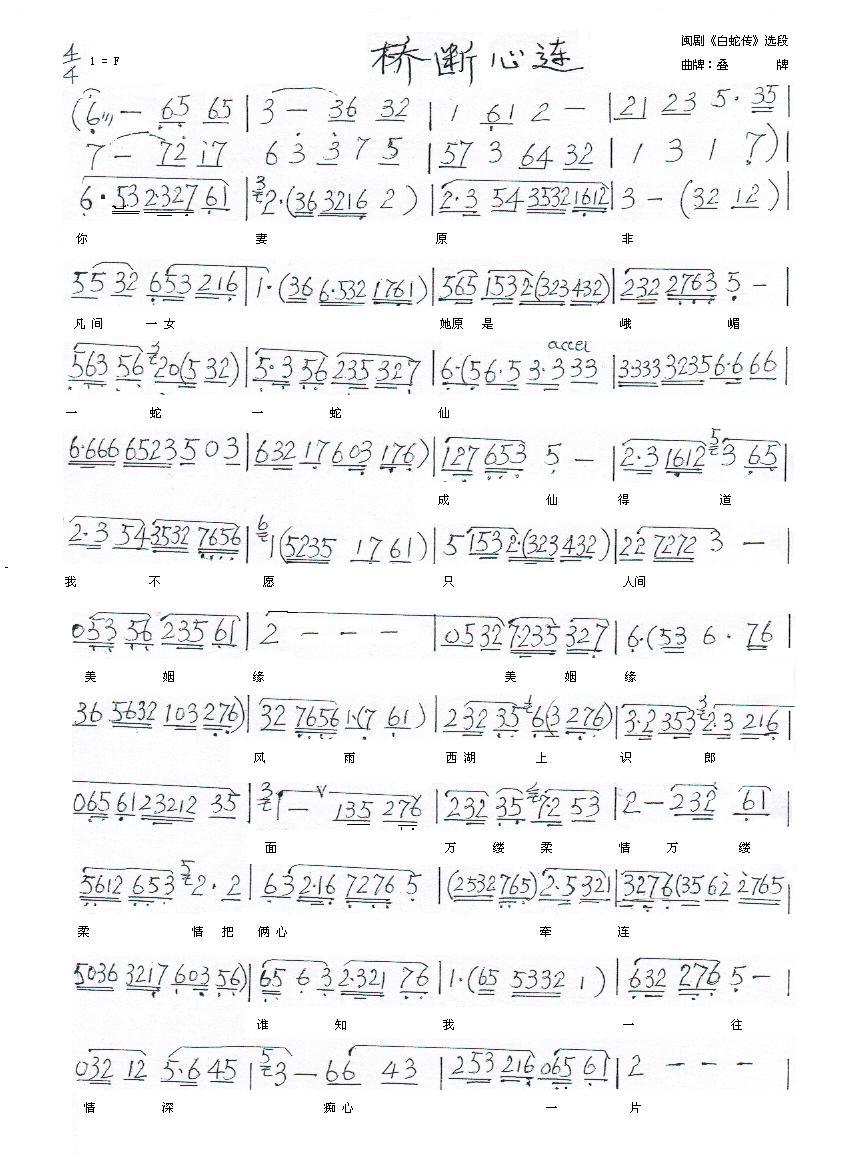 桥断心连
闽剧《白蛇传》选段
4/4 1 = F
曲牌：叠 牌
3 — 36 32 | 1 61 2 — | 21 23 5· 35 |
7 — 72 17 6 3 3 7 5 | 57 3 64 32 | 1 3 1 7 ) |
6· 53 2·327 61 | 2·(36 3216 2 ) | 2·3 54 3532 1612 | 3 — (32 12) |
你 妻 原 非
55 32 653 216 | 1·(36 6·532 1761) | 565 1532·(323 432) | 232 2763 5 — |
凡间 一女 她原 是 峨 嵋
563 56 20(5 32) | 5·3 56 235 327 | 6·(56·5 3·3 33 | 3·333 3235 6·6 66 |
accel
一 蛇 一 蛇 仙
6·666 6523 5 03 | 632 17 603 176) | 127 653 5 — | 2·3 1612 3 65 |
成 仙 得 道
2·3 54 3532 7656 | 1(5235 17 61) | 5 1532·(323 432) | 22 7272 3 — |
我 不 愿 只 人间
053 56 235 61 | 2 — — — | 0532 7·235 327 | 6·(53 6· 76 |
美 姻 缘 美 姻 缘
36 5632 103 276) | 32 7656 1·(7 61) | 232 35 6(3 276) | 3·2 353 2·3 216 |
风 雨 西湖 上 识 郎
065 61 23212 35 | 1 — 135 276 | 232 35 7·2 53 | 2 — 232 61 |
面 万 缕 柔 情 万 缕
5612 653 2· 2 | 63 2·16 7276 5 | (2532 765) 2·5321 | 3276 (3562 2765 |
柔 情 把 俩心 牵 连
5036 3217 603 56) | 65 6 3 2·321 76 | 1·(65 5332 1 ) | 632 276 5 — |
谁 知 我 一 往
032 12 5·6 45 | 3 — 66 43 | 253 216 065 61 | 2 — — — |
情 深 痴心 一 片